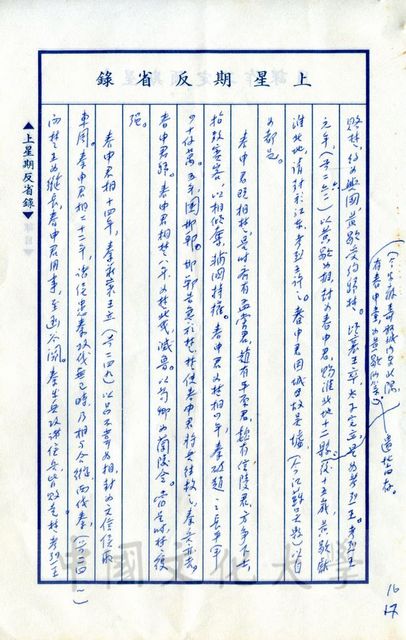 上星期反省錄
賂楚,約為與國。黃歇受約歸楚。王卒,太子完立,是為考烈王。考烈王
元年(前二六二)以黃歇為相,封為春申君,賜淮北地十二縣。後十五歲,黃歇獻
淮北地,請封於江東,考烈王許之。春申君因城故吳墟(今江蘇吳縣)以自
為都邑。
春申君既相楚,是時齊有孟嘗君,趙有平原君,魏有信陵君,方爭下士,
招致賓客,以相傾奪,輔國持權。春申君為楚相四年,秦破趙之長平軍
四十餘萬。五年,圍邯鄲。邯鄲告急於楚,楚使春申君將兵往救之,秦兵亦去,
春申君歸。春申君相楚八年,為楚北伐滅魯,以荀卿為蘭陵令。當是時,楚復
強。
春申君相十四年,秦莊襄王立(前二四九)以呂不韋為相,封為文信侯。取
東周。春申君相二十二年,諸侯患秦攻伐無已時,乃相與合縱西伐秦,(前二四一)
而楚王為縱長,春申君用事,至函谷關。秦出兵攻諸侯兵皆敗走。楚考烈王
遺址尚存。
▲上星期反省錄▼
16
17
中國文化大學